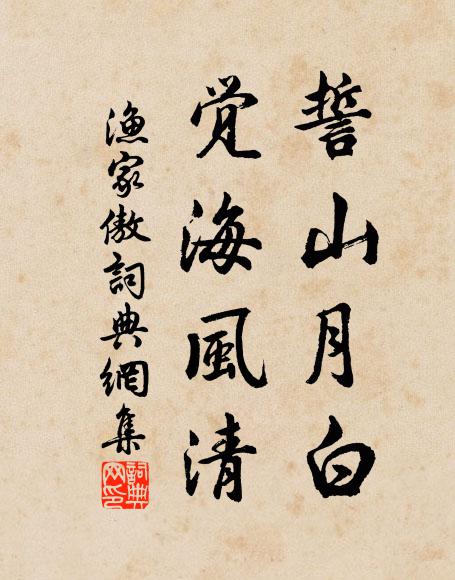 誓山月白
覚海風清
漁家傲詞典網集
詞典
网印